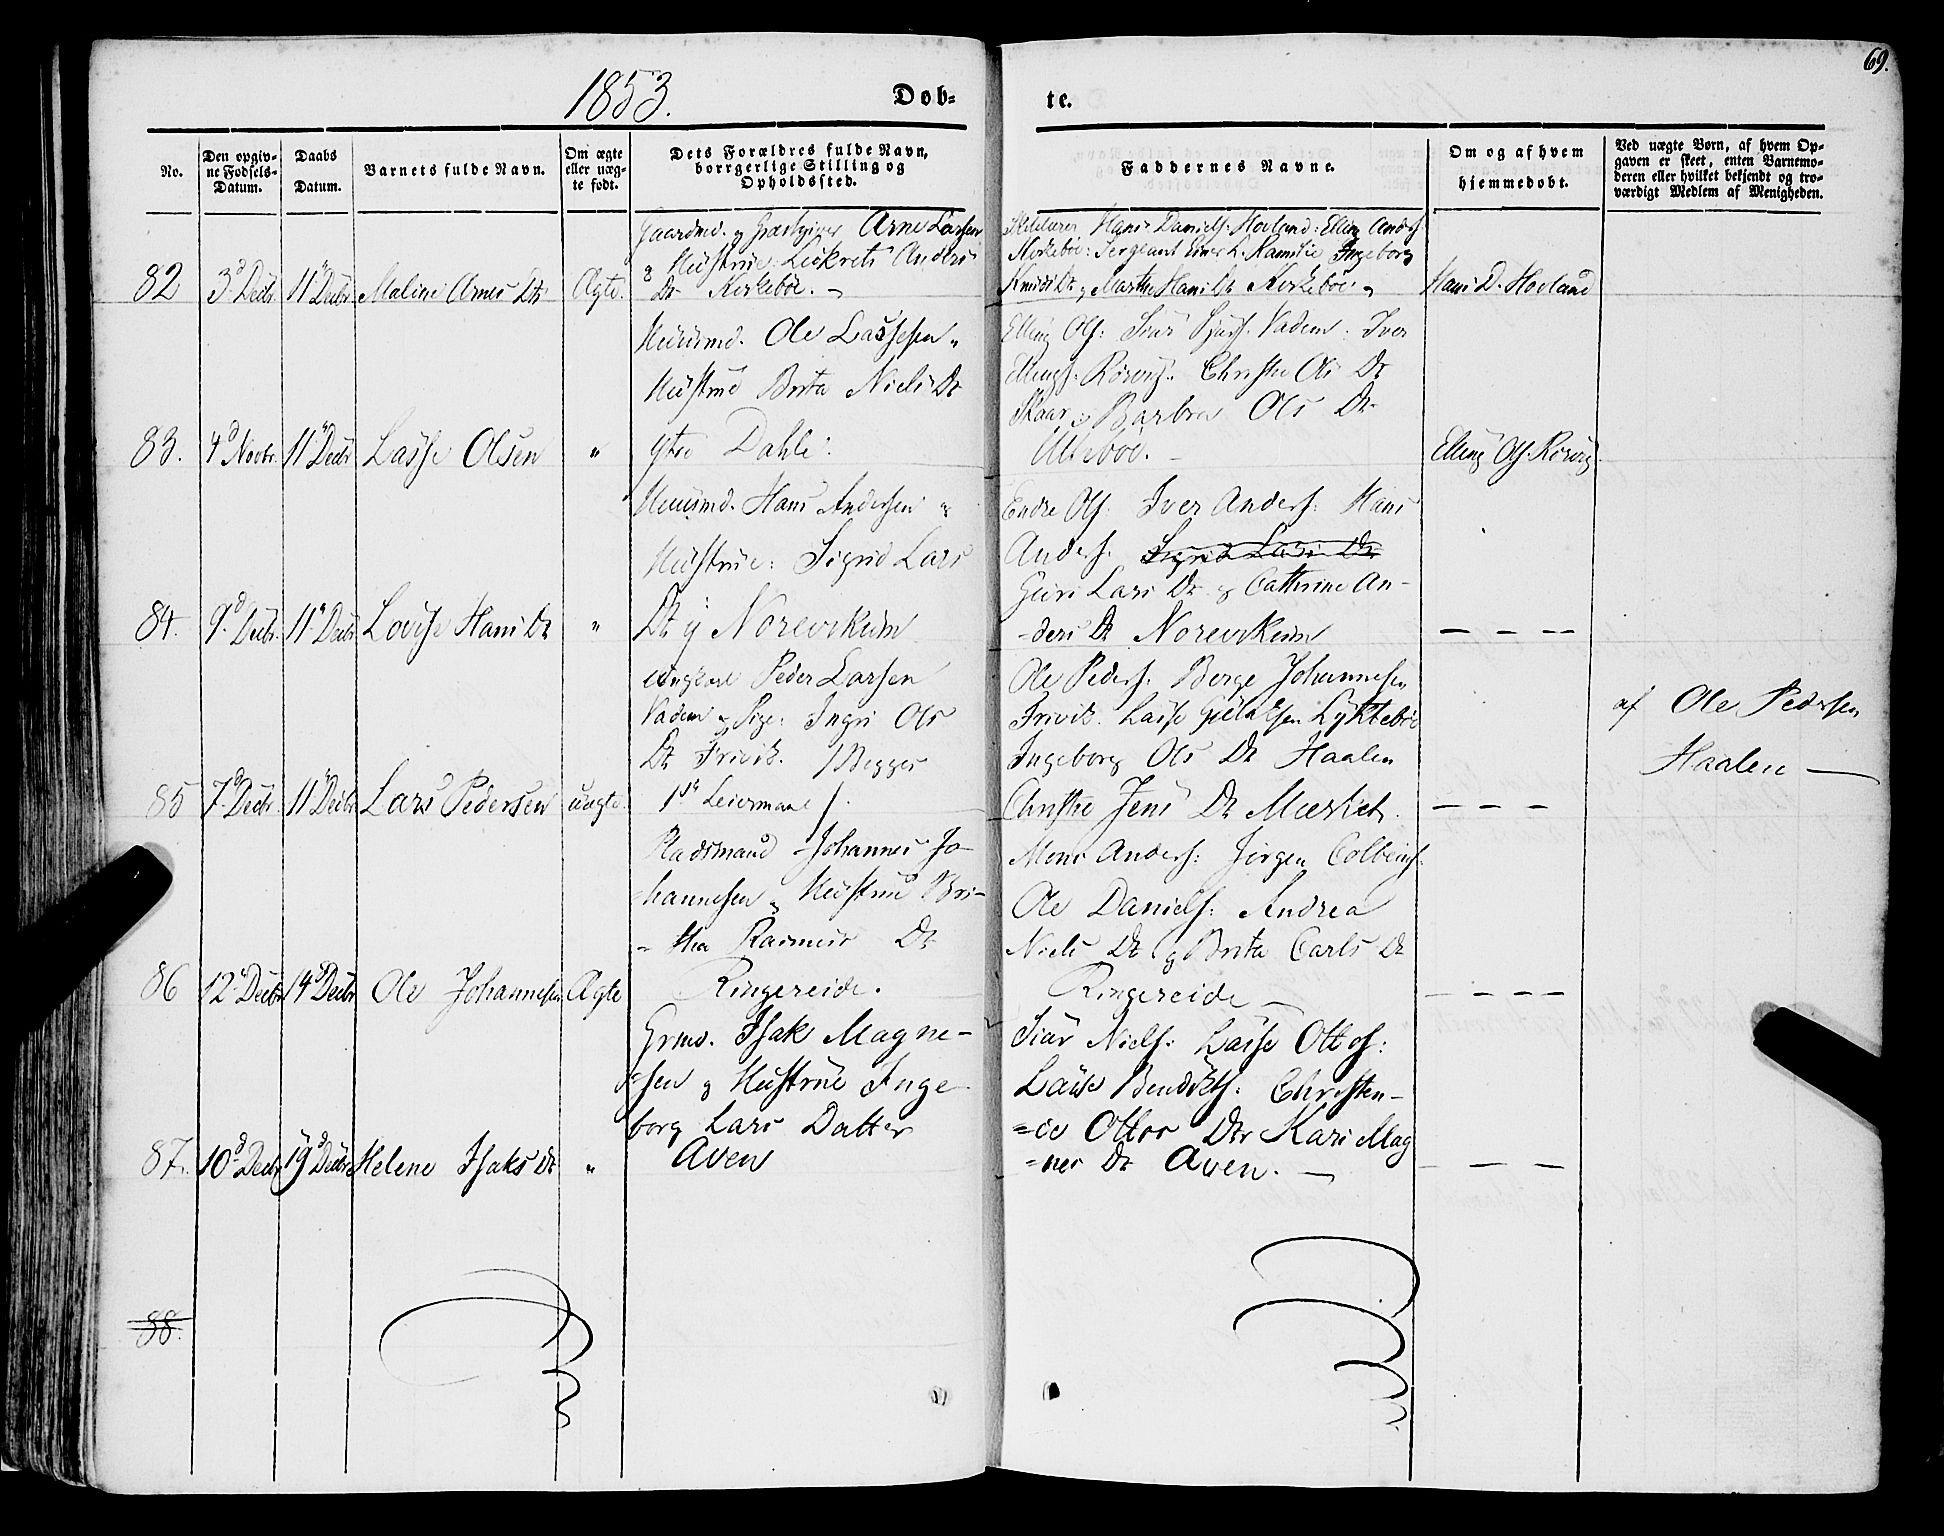 1853.
Dob-
te.
69.
No.
Den opgiv-
ne Fødsels-
Datum.
Daabs
Datum.
Barnets fulde Navn.
Om ægte
eller uæg-
te født.
Dets Forældres fulde Navn,
borgerlige Stilling og
Opholdssted.
Faddernes Navne.
Om og af hvem
hjemmedøbt.
Ved uægte Børn, af hvem Op-
gaven er skeet, enten Barnemo-
deren eller hvilket bekjendt og tro-
værdigt Medlem af Menigheden.
82
3d Decbr.
11te Decbr
Maline Arnes Dtr
Ægte.
Gaardmd. og Giæstgiver Arne Larsen
& Hustrue: Lukretz Anders
Dtr Kirkeboe.
Hans Daniels. Hovland: Elling Anders.
Kirkeboe: Sergeant Einer L. Ramslie Ingeborg
Knuds Dtr, Marthe Hans Dtr Kirkeboe.
Hans D. Hovland
83.
4d Novbr.
11te Decbr
Lasse Olsen
"
Huusmd. Ole Lassesen
Hustrue Brita Niels Dtr
ytre Dahle.
Elling Ols: Siur Vadem. Iver
Ellings. Rørvig. Christie Ols Dtr
Skaar og Barbra Ols Dtr
Elling Ols. Rørvig.
84.
9d Decbr.
11te Decbr
Lovise Hans Dtr
"
Huusmd. Hans Andersen &
Hustrue: Sigrid Lars
Dtr Norevikum
Endre Ols: Iver Anders: Hans
Anders. Sigrid Lars Dtr
Guri Lars Dtr & Cathrine An-
-ders Dtr Norevikum
— — — —
85
7d Decbr.
11te Decbr
Lars Pedersen
uægte
Ungkarl Peder Larsen
Vadem og Pige: Ingri Ols
Dtr Frivik. /Begges
1ste Leiermaal/.
Ole Peders. Berge Johannesen
Frivik. Lasse Lyktebøe
Ingeborg Ols Dtr Haalen
Christie Jens Dtr
— — —
af Ole Pedersen
Haalen —
86
12te Decbr
14d Decbr
Ole Johannesen
Ægte
Pladsmand Johannes Jo-
-hannesen & Hustrue Bri-
-tha Rasmus Dtr
Ringereide.
Mons Anders: Jørgen Colbeins.
Ole Daniels: Andrea
Niels Dtr og Brita Carls Dtr
Ringereide —
— — — —
87.
10d Decbr
19d Decbr
Helene Isaks Dtr
"
Grmd. Isak Magne-
-sen & Hustrue Inge-
borg Lars Datter
Aven
Siur Niels: Lasse Ottos:
Lasse Bendiks: Christen-
=ce Ottos Dtr Kari Mag
=nes Dtr Aven. —
— — —
88.